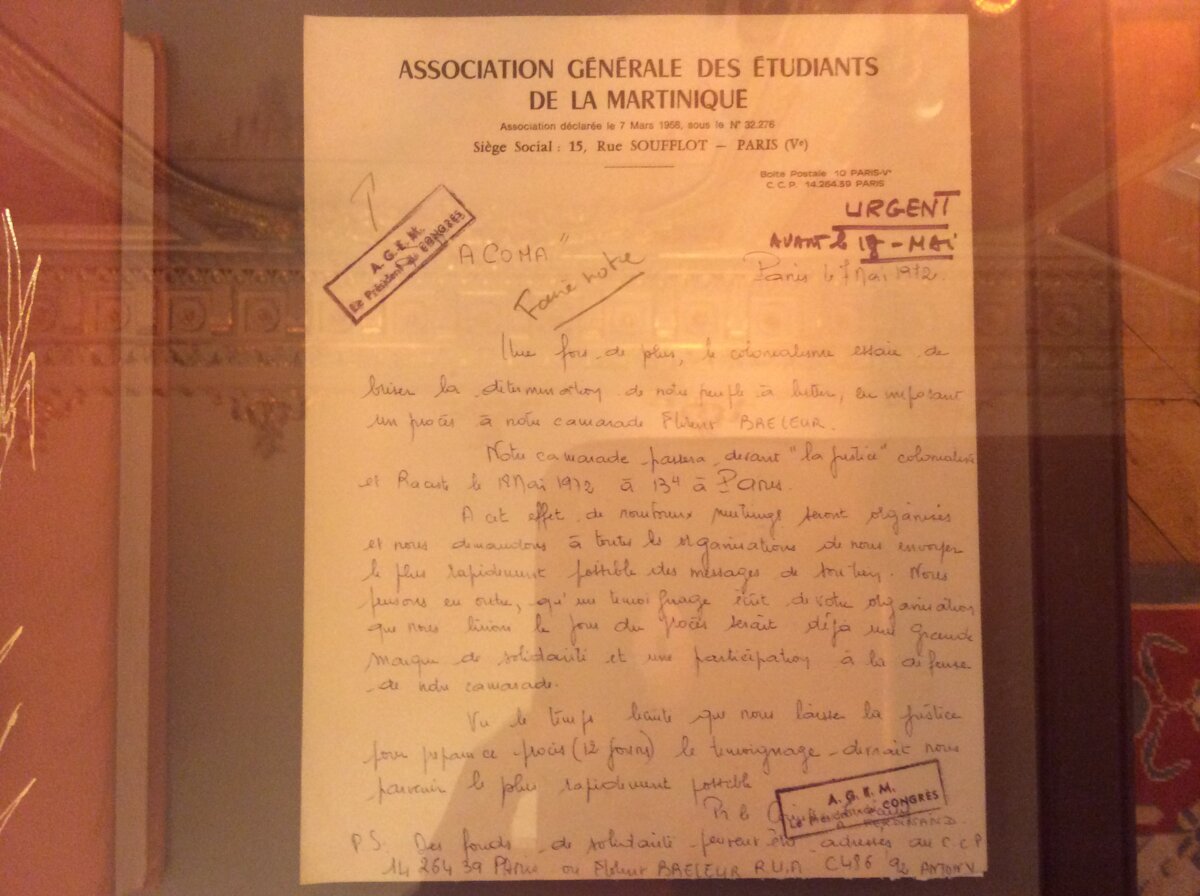 ASSOCIATION GÉNÉRALE DES ÉTUDIANTS
DE LA MARTINIQUE
Association déclarée le 7 Mars 1958, sous le N° 32.276
Siège Social : 15, Rue SOUFFLOT — PARIS (Vᵉ)
Boîte Postale 10 PARIS-Vᵉ
C.C.P. 14.264.39 PARIS
URGENT
AVANT le 18 - MAI
A. G. E. M.
Le Président du CONGRÈS
ACOMA"
Faire notre
Paris le 7 Mai 1972.
Une fois de plus, le colonialisme essaie de
briser la détermination de notre peuple à lutter, en imposant
un procès à notre camarade Florent BRELEUR.
Notre camarade passera devant "la justice" colonialiste
et Raciste le 18 Mai 1972 à 13H à Paris.
A cet effet de nombreux meetings seront organisés
et nous demandons à toutes les organisations de nous envoyer
le plus rapidement possible des messages de soutien. Nous
pensons en outre, qu'un temoignage écrit de votre organisation
que nous lirions le jour du procès serait déjà une grande
marque de solidarité et une participation à la défense
de notre camarade.
Vu le temps que nous laisse la justice
pour ce procès (12 jours) le temoignage devrait nous
parvenir le plus rapidement possible
Pr le
A. G. E. M.
Le Président du CONGRÈS
FERDINAND.
P.S. Des fonds de solidarité peuvent être adressés au C.C.P
14 264 39 PARIS ou Florent BRELEUR R.U.A C486 92 ANTONY